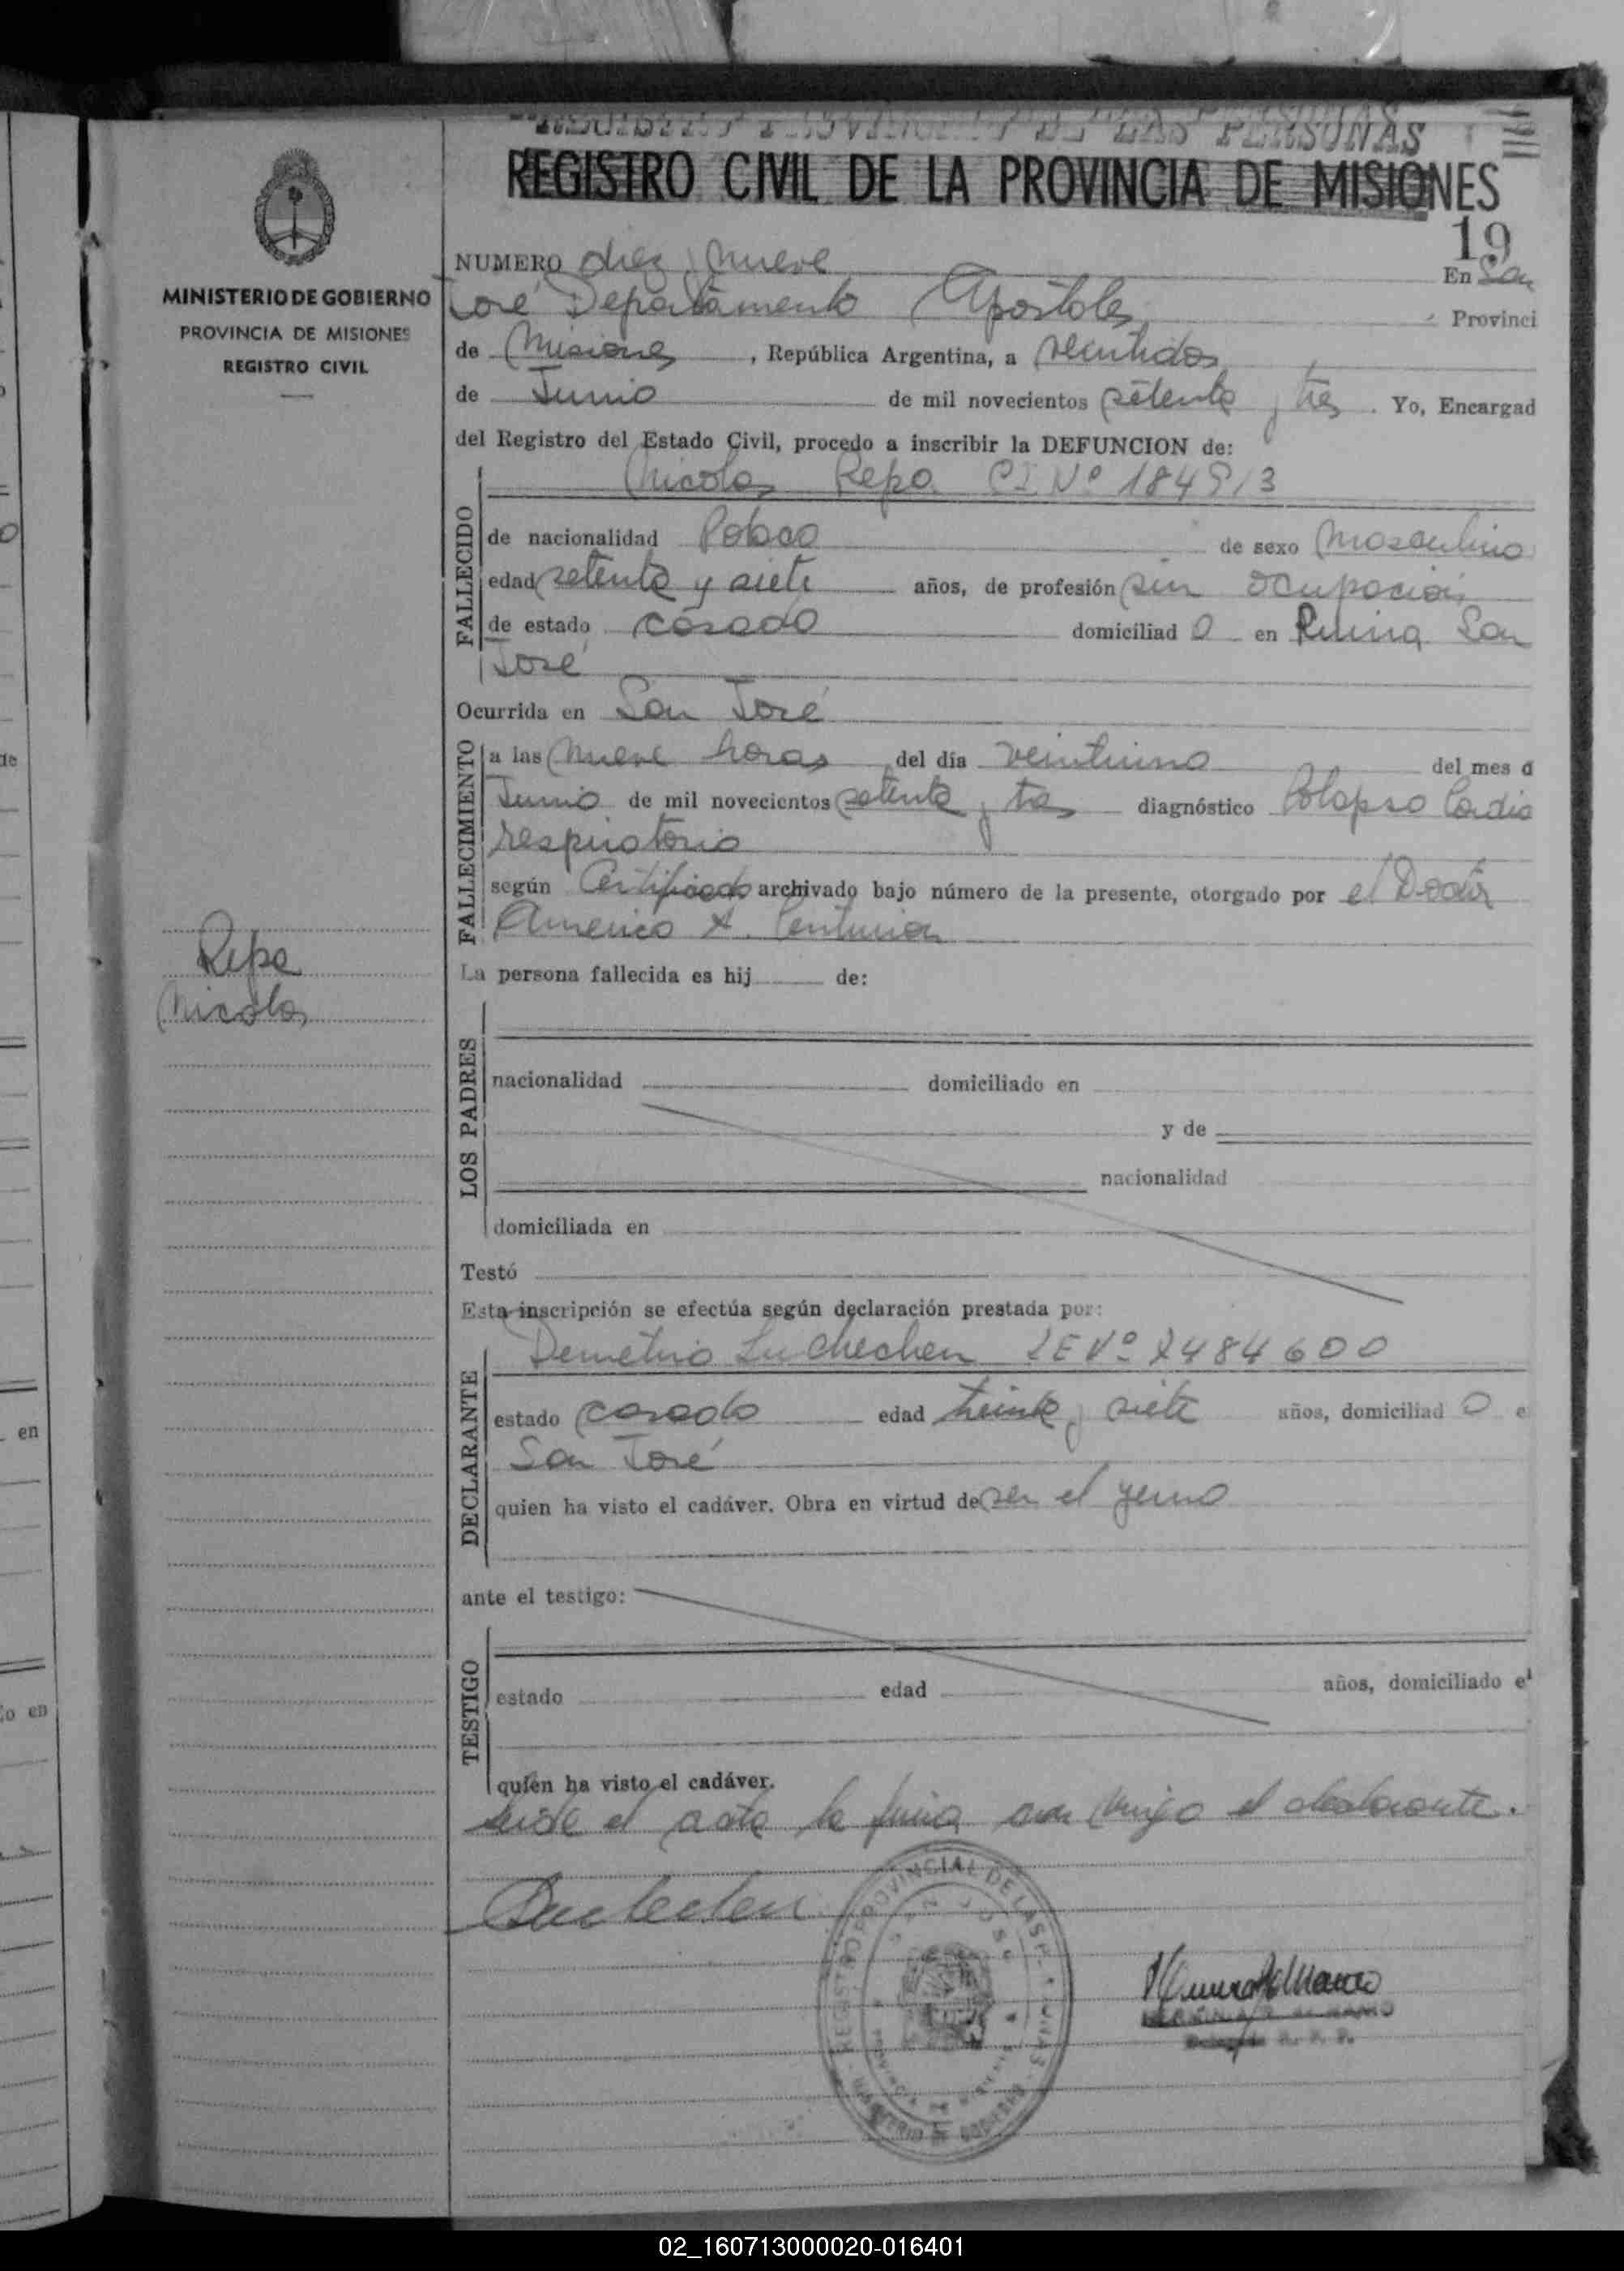 REGISTRO PROVINCIAL DE LAS PERSONAS
REGISTRO CIVIL DE LA PROVINCIA DE MISIONES
19
MINISTERIO DE GOBIERNO
PROVINCIA DE MISIONES
REGISTRO CIVIL
NUMERO diez y nueve En San
José Departamento Apostoles Provinci
de Misiones, República Argentina, a veintidos
de Junio de mil novecientos setenta y tres. Yo, Encargad
del Registro del Estado Civil, procedo a inscribir la DEFUNCION de:
FALLECIDO
Nicolas Repa CI Nº
de nacionalidad Polaco de sexo masculino
edad setenta y siete años, de profesión sin ocupación
de estado casado domiciliad o en San
José
Ocurrida en San José
FALLECIMIENTO
a las nueve horas del día veintiuno del mes d
Junio de mil novecientos setenta y tres diagnóstico Colapso Cardio
respiratorio
según Certificado archivado bajo número de la presente, otorgado por el Doctor
Americo A. Centurion
Repa
Nicolas
La persona fallecida es hij de:
LOS PADRES
nacionalidad domiciliado en
y de
nacionalidad
domiciliada en
Testó
Esta inscripción se efectúa según declaración prestada por:
DECLARANTE
Demetrio Luchechen LE Nº 7484600
estado casado edad treinta y siete años, domiciliad o e
San José
quien ha visto el cadáver. Obra en virtud de ser el yerno
ante el testigo:
TESTIGO
estado edad años, domiciliado e
quien ha visto el cadáver.
Leida el acta la firma con migo el declarante.
Luchechen
REGISTRO PROVINCIAL DE LAS PERSONAS
SAN JOSE
MINISTERIO DE GOBIERNO
02_160713000020-016401